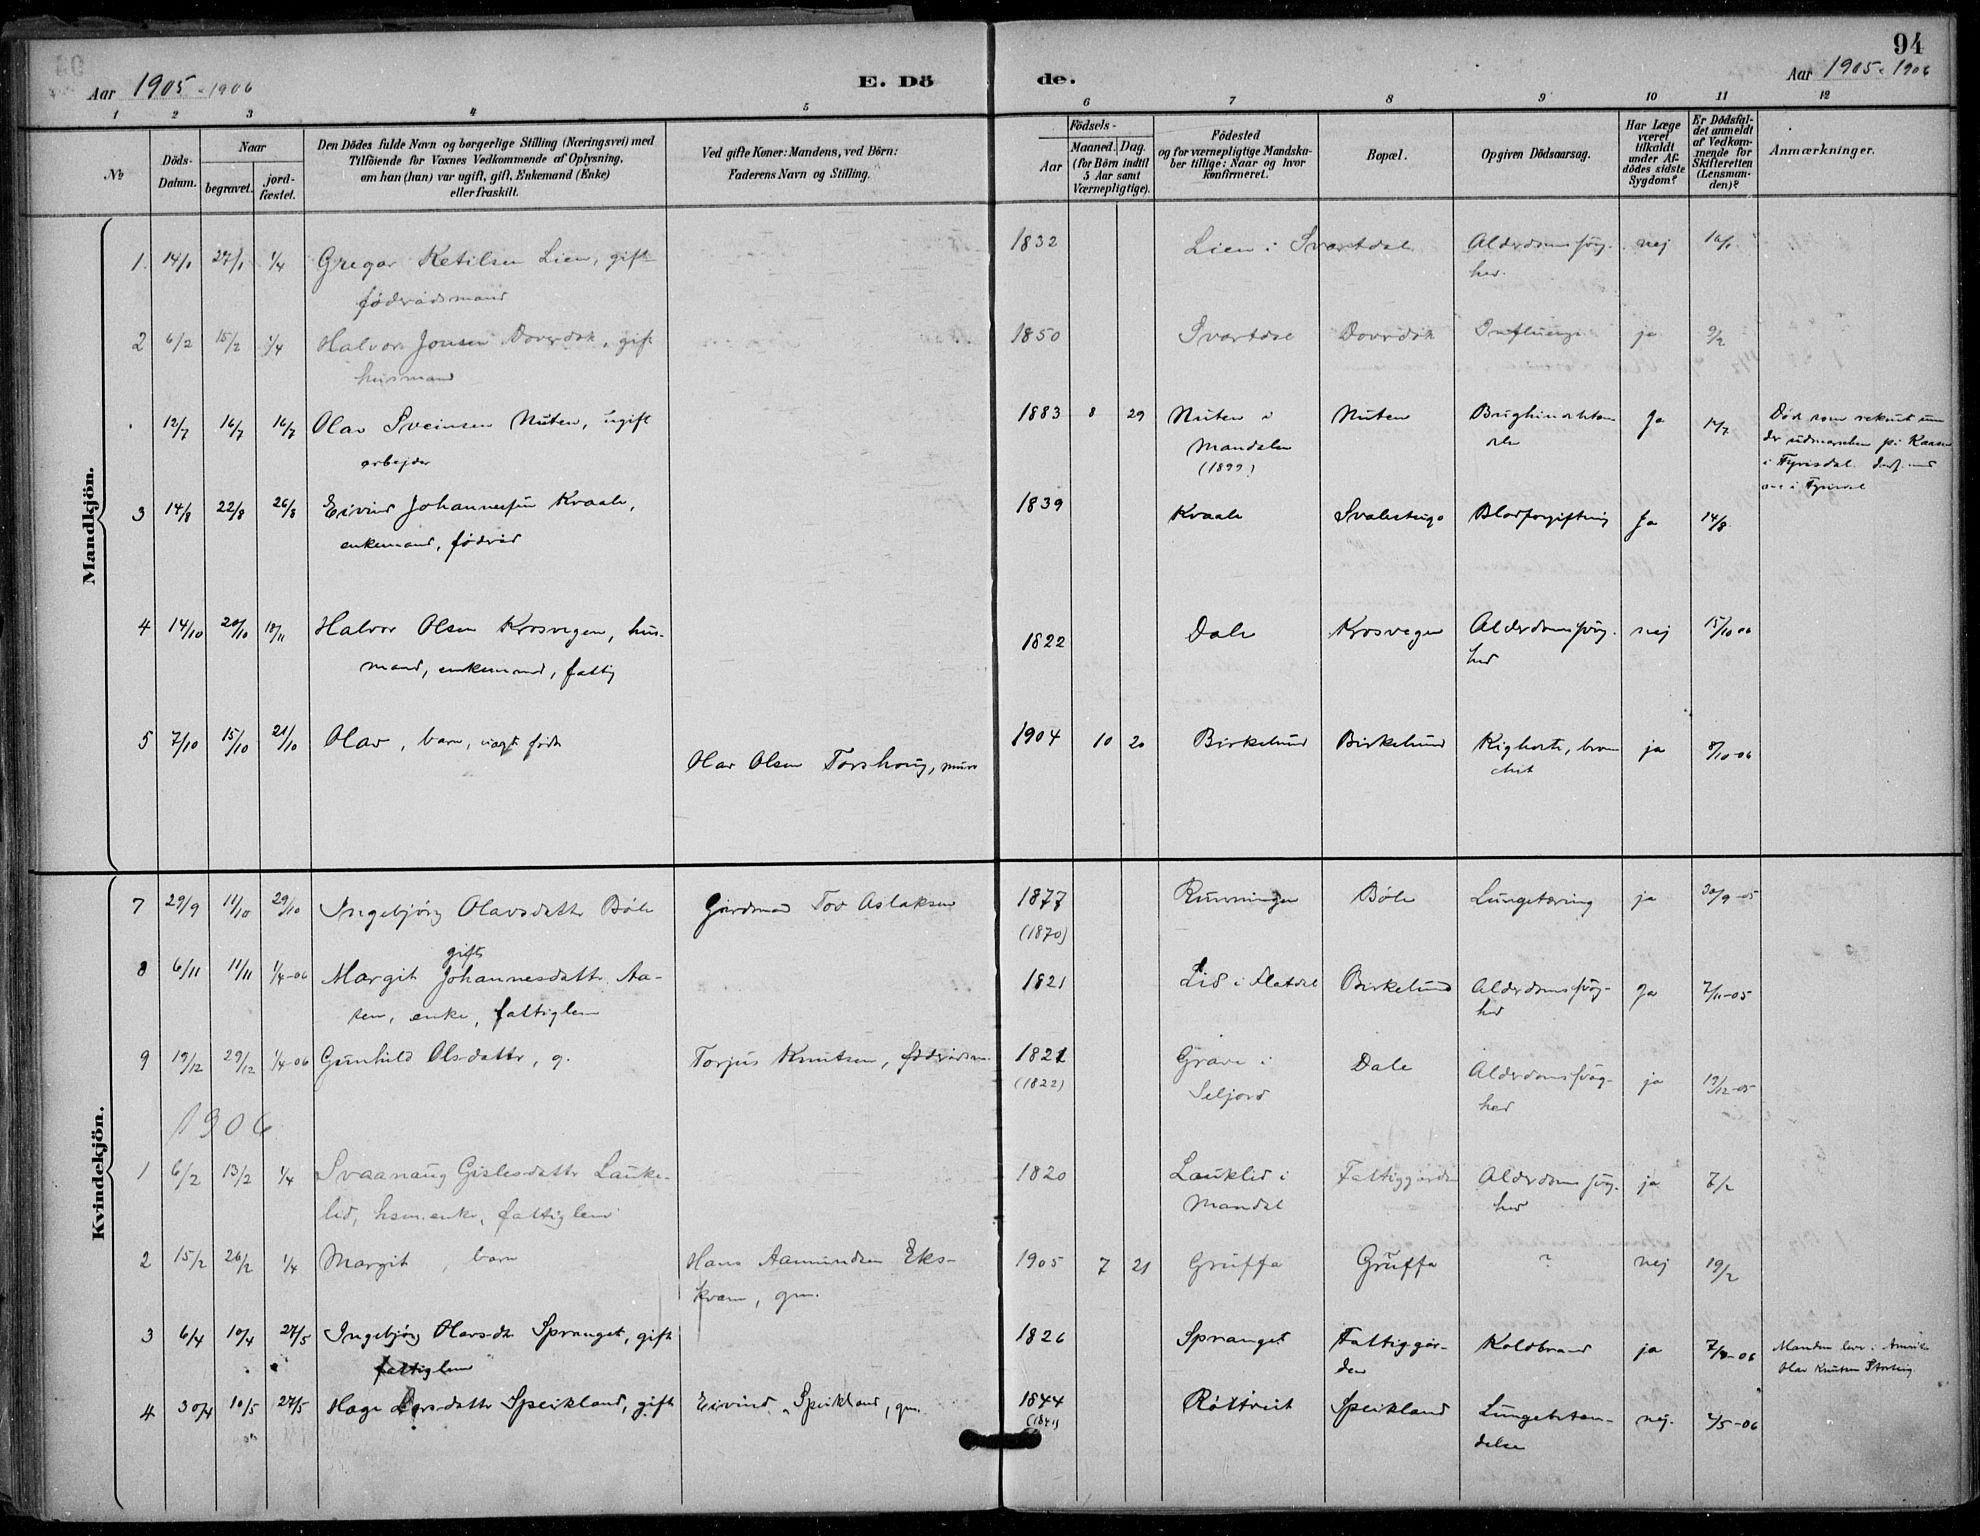 94
Aar 1905-1906
E. Dö
de.
Aar 1905-1906
1 2 3 4 5 6 7 8 9 10 11 12
No
Döds-Datum.
Naar
begravet.
jord-fæstet.
Den Dödes fulde Navn og borgerlige Stilling (Næringsvei) med
Tilföiende for Voxnes Vedkommende af Oplysning,
om han (hun) var ugift, gift, Enkemand (Enke)
eller fraskilt.
Ved gifte Koner: Mandens, ved Börn:
Faderens Navn og Stilling.
Födsels-
Aar
Maaned. Dag.
(for Börn indtil
5 Aar samt
Værnepligtige).
Födested
og for værnepligtige Mandska-
ber tillige: Naar og hvor
konfirmeret.
Bopæl.
Opgiven Dödsaarsag.
Har Læge
været
tilkaldt
under Af-
dödes sidste
Sygdom?
Er Dödsfal-
det anmeldt
af Vedkom-
mende for
Skifteretten
(Lensman-
den)?
Anmærkninger.
Mandkjön.
1. 14/1 27/1 1/4 Gregar Ketilsen Lien, gift 1832 Lien i Svartdal Alderdomssvag- nej 16/1
föderaadsmand hed.
2 6/2 15/2 1/4 Halvor Jonsen Dovrdok, gift 1850 Svartdal Dovrdok Influenza ja 9/2
husmand
12/7 16/7 16/7 Olav Sveinsen Nuten, ugift 1883 8 29 Nuten i Nuten Ja 14/7 Död som rekrut un
arbejder Mandalen der udmarschen på
(1899) i Fyrisdal.
3 14/8 22/8 26/8 Eivind Johannessen Kvaale, 1839 Kvaale Svalestugo Blodforgiftning Ja 14/8
enkemand, föderåd
4 14/10 20/10 18/11 Halvor Olsen Krosvegen, hus- 1822 Dale Krosvegen Alderdomssvag- nej 15/10 06
mand, enkemand, fattig hed
5 7/10 15/10 21/10 Olav, barn, uægte födt 1904 10 20 Birkelund Birkelund Kighoste, bron ja 8/10-06
Olav Olsen Torshoug, murer chit
Kvindekjön.
7 29/9 11/10 29/10 Ingebjörg Olavsdatter Böle Gardmand Tov Aslaksen 1877 Runningen Böle Lungetæring ja 30/9-05
(1870)
gift
8 6/11 11/11 1/4-06 Margit Johannesdatter Aa- 1821 Lid i Flatdal Birkelund Alderdomssvag- Ja 7/11-05
sen, enke, fattiglem hed
9 19/12 29/12 1/4-06 Gunhild Olsdatter, g. Torjus Knutsen, föderådsm. 1821 Grave i Dale Alderdomssvag- ja 19/12-05
(1822) Seljord hed
1906
1 6/2 13/2 1/4 Svaanaug Gislesdatter Lauke- 1820 Lauklid i Fattiggården Alderdomssvag- ja 7/2
lid, hsm.enke, fattiglem Mandal hed
2 15/2 26/2 1/4 Margit, barn Hans Aamundsen Eks- 1905 7 21 Gruffa Gruffa ? nej 19/2
kvam, gm.
3 6/4 10/4 27/5 Ingebjörg Olavsdtr Spranget, gift 1826 Spranget Fattiggår- Koldbrand ja 7/4-06 Manden lever i Amerika
fattiglem den Olav Knutsen
4 30/4 10/5 27/5 Hæge Larsdatter Speikland, gift Eivind Speikland, gm. 1844 Röttveit Speikland Lungebetæn- nej. 2/5-06
(1841) delse